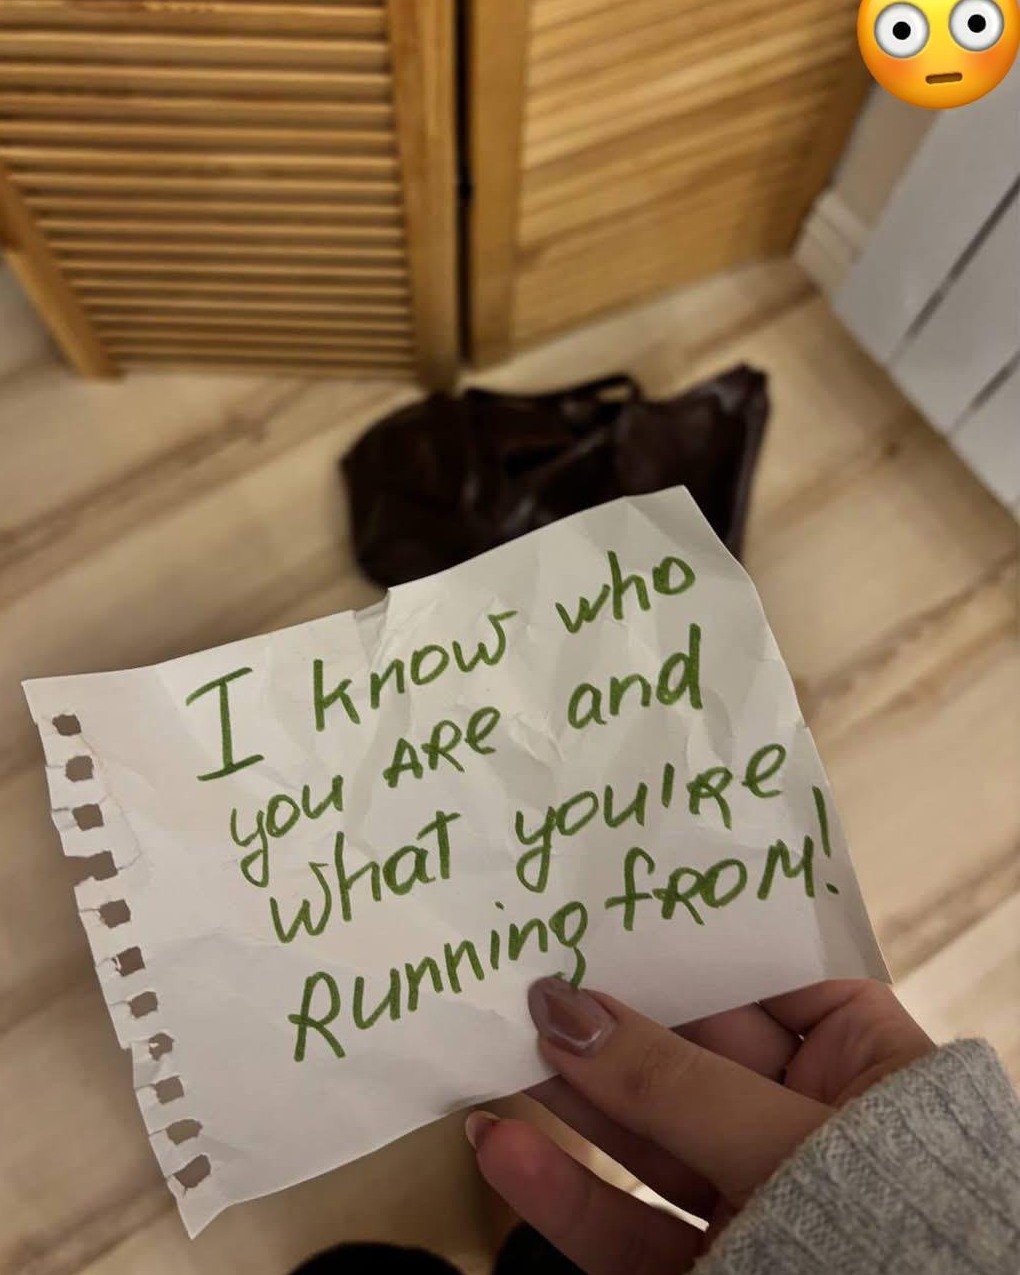 I know who
you ARe and
what you'Re
Running fROM!